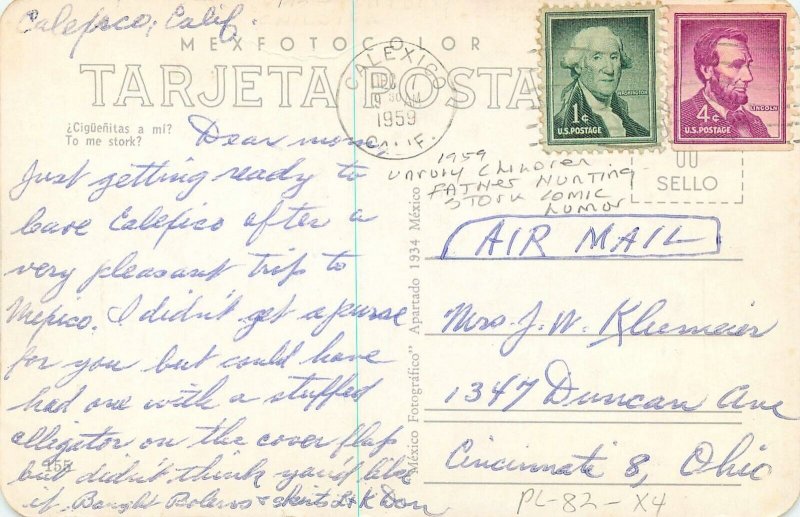 Calexico, Calif.
MEXFOTOCOLOR
TARJETA POSTA
CALEXICO
DEC 1
9 30 AM
1959
CALIF.
1¢
WASHINGTON
U.S. POSTAGE
4¢
LINCOLN
U.S. POSTAGE
¿Cigüeñitas a mí?
To me stork?
SELLO
1959
UNRULY CHILDREN
FATHER HUNTING
STORK COMIC
HUMOR
Dear mom,
Just getting ready to
leave Calexico after a
very pleasant trip to
Mexico. I didn't get a purse
for you but could have
had one with a stuffed
alligator on the cover flap
but didn't think you'd like
it. Bought Boleros & skirts L & K Don
155
México Fotográfico" Apartado 1934 México
AIR MAIL
Mrs. J. W. Kluemeier
1347 Duncan Ave
Cincinnati 8, Ohio
PL-82-X4